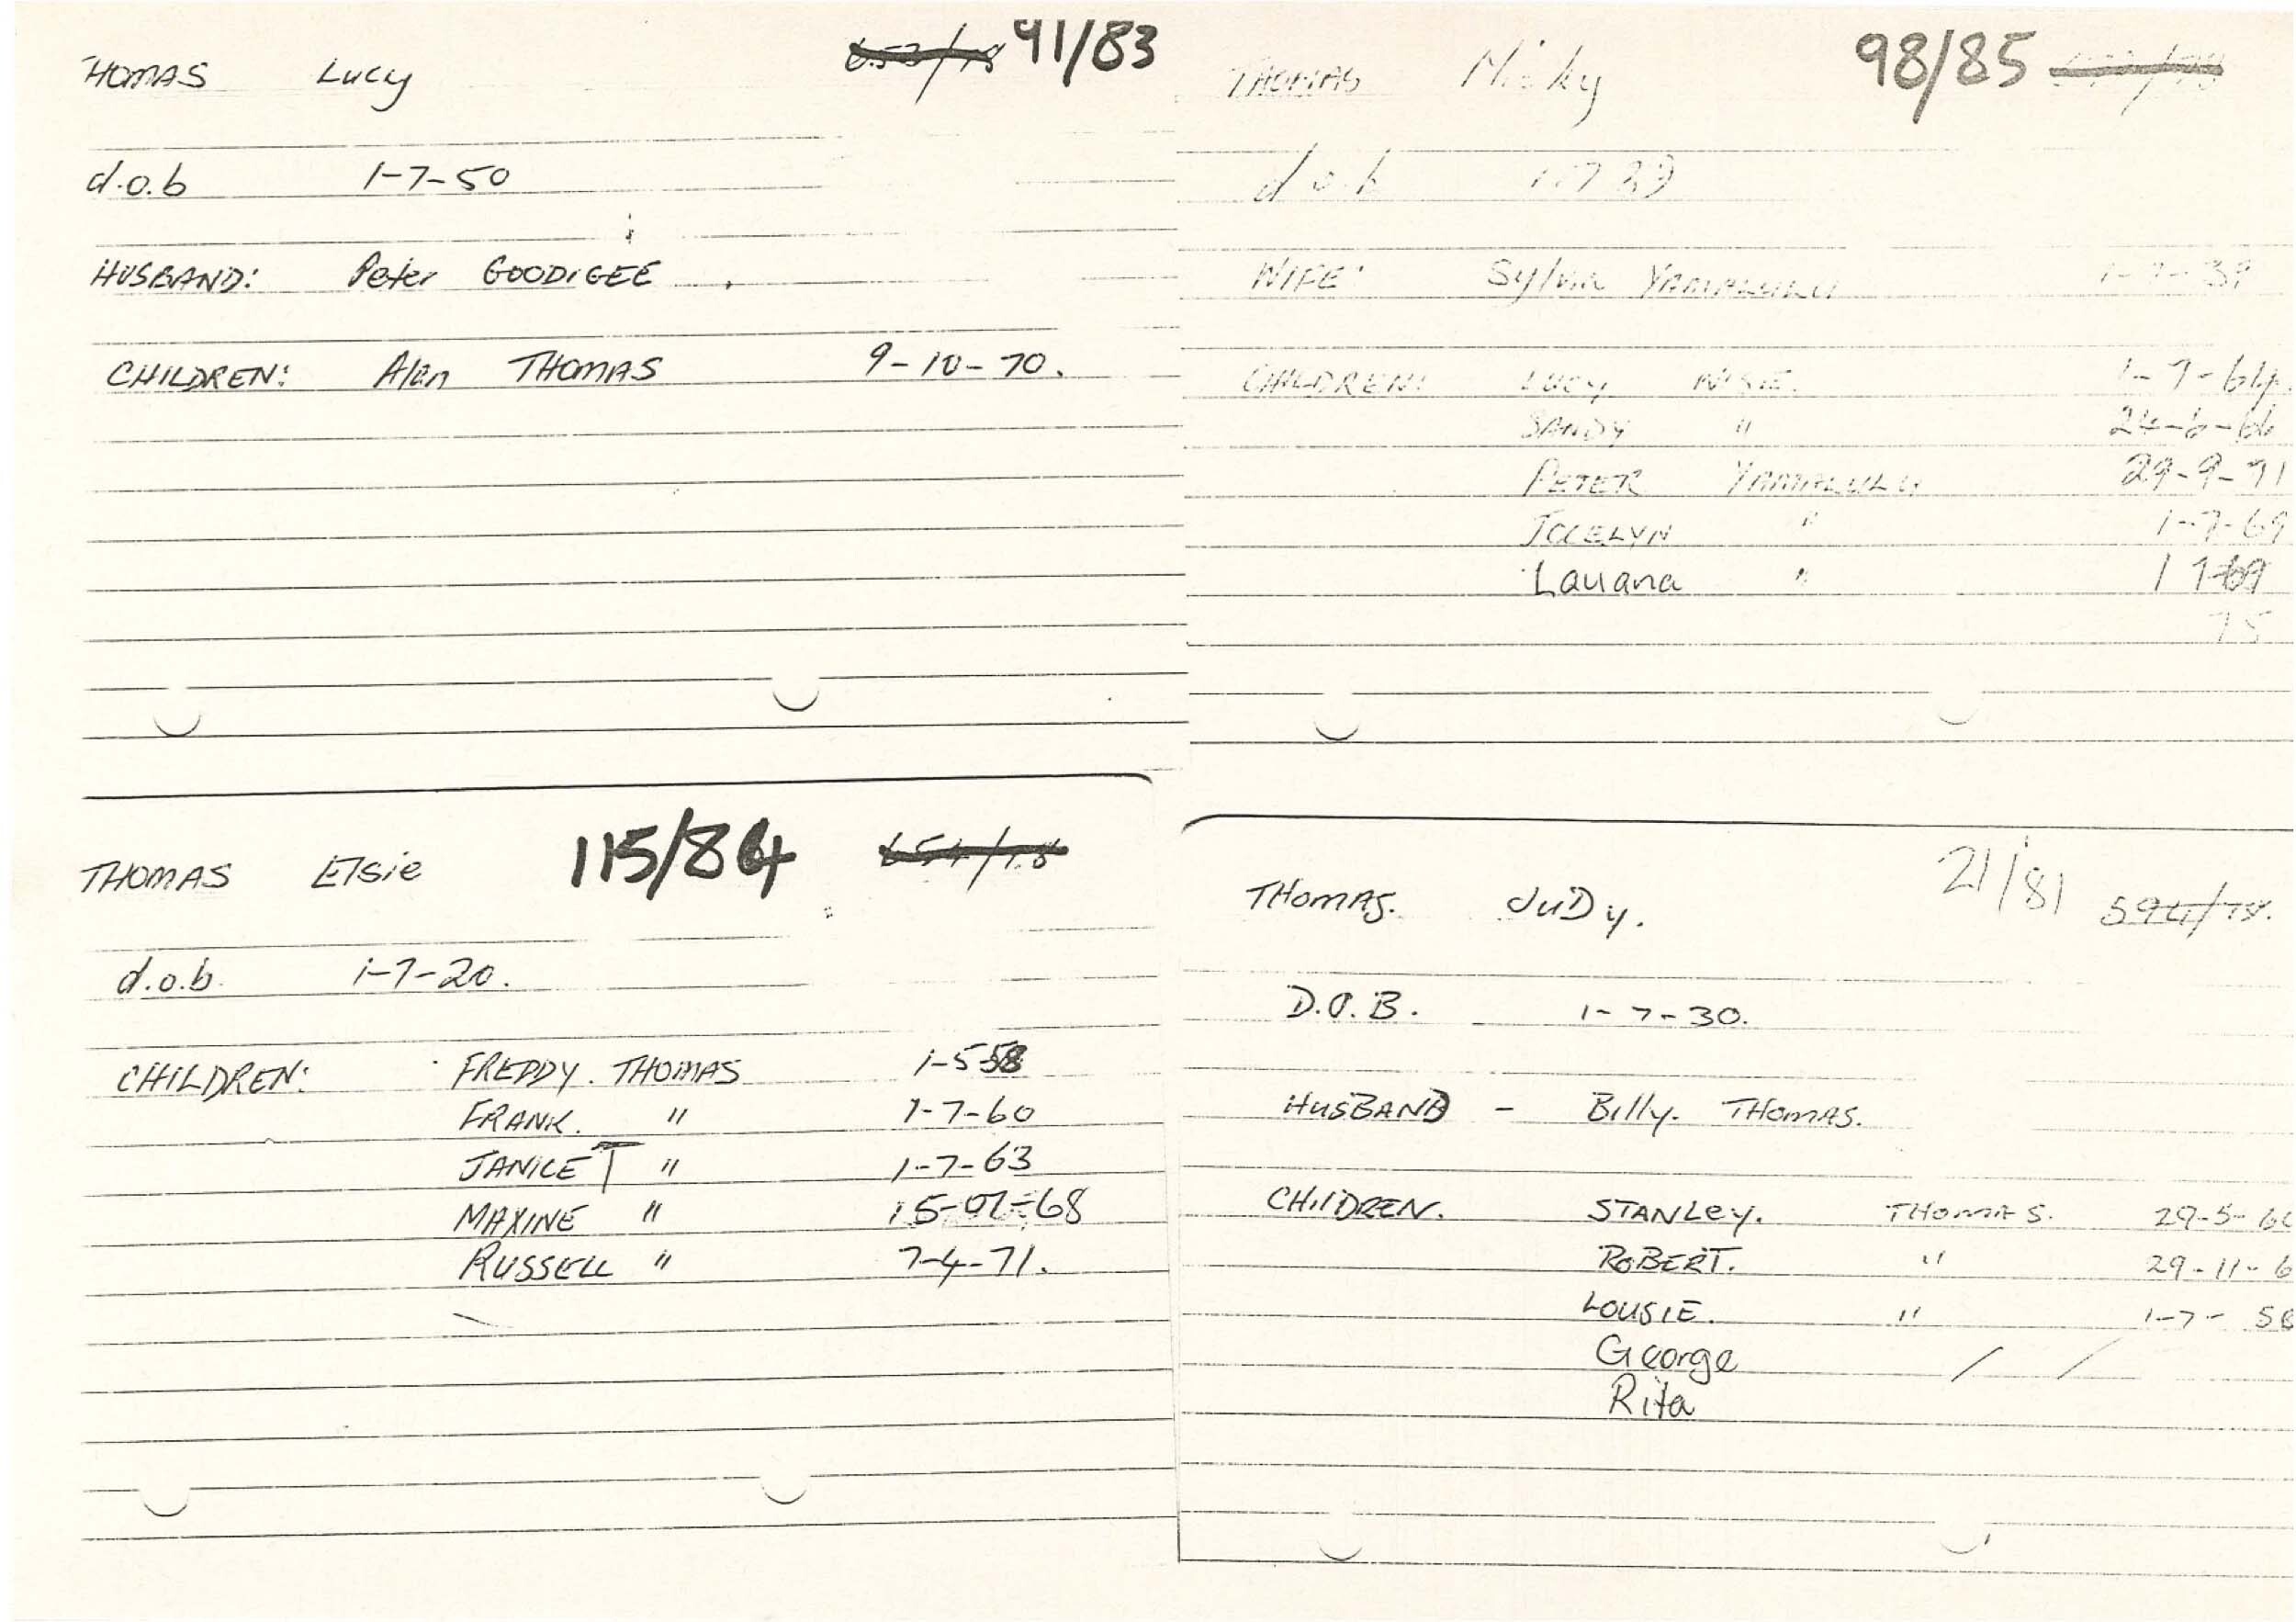 THOMAS Lucy 91/83
d.o.b 1-7-50
HUSBAND: Peter GOODIGEE
CHILDREN: Alan THOMAS 9-10-70.
THOMAS Micky 98/85
d.o.b
WIFE: Sylvia YAMALULU 1-7-39
CHILDREN: LUCY 1-7-64
SANDY " 24-6-66
PETER YAMALULU 29-9-71
JOCELYN " 1-7-69
Lauana " 1 7-69
75
THOMAS Elsie 115/84 654/78
d.o.b. 1-7-20.
CHILDREN: FREDDY. THOMAS 1-5-58
FRANK. " 1-7-60
JANICE T " 1-7-63
MAXINE " 15-07-68
RUSSELL " 7-4-71.
THOMAS. JUDy. 21/81 594/78.
D.O.B. 1-7-30.
HUSBAND - Billy. THOMAS.
CHILDREN. STANLEY. THOMAS. 29-5-6
ROBERT. " 29-11-6
LOUSIE. " 1-7-58
George / /
Rita